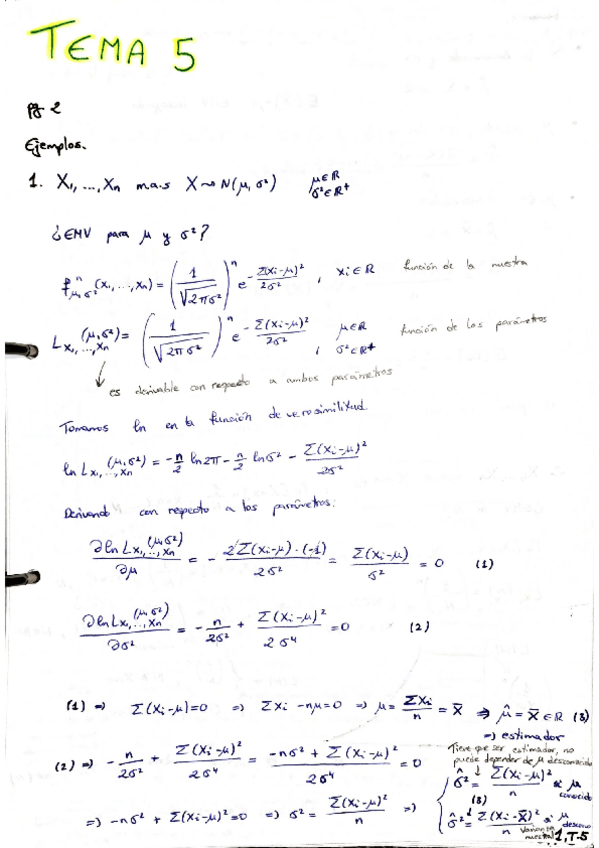 TEMA 5
pg 2
Ejemplos.
1. X₁, ..., Xₙ m.a.s X ~ N(μ, σ²) μ∈ℝ σ²∈ℝ⁺
¿EMV para μ y σ²?
fⁿ_{μ,σ²}(x₁, ..., xₙ) = (1/√(2πσ²))ⁿ e^{-Σ(xᵢ-μ)²/2σ²}, xᵢ∈ℝ función de la muestra
L_{x₁,...,xₙ}(μ,σ²) = (1/√(2πσ²))ⁿ e^{-Σ(xᵢ-μ)²/2σ²}, μ∈ℝ σ²∈ℝ⁺ función de los parámetros
↓ es derivable con respecto a ambos parámetros
Tomamos ln en la función de verosimilitud
ln L_{x₁,...,xₙ}(μ,σ²) = -n/2 ln2π - n/2 lnσ² - Σ(xᵢ-μ)²/2σ²
Derivando con respecto a los parámetros:
∂ln L_{x₁,...,xₙ}(μ,σ²)/∂μ = - 2Σ(xᵢ-μ)·(-1)/2σ² = Σ(xᵢ-μ)/σ² = 0 (1)
∂ln L_{x₁,...,xₙ}(μ,σ²)/∂σ² = -n/2σ² + Σ(xᵢ-μ)²/2σ⁴ = 0 (2)
(1) ⇒ Σ(xᵢ-μ)=0 ⇒ Σxᵢ - nμ=0 ⇒ μ = Σxᵢ/n = x̄ ⇒ μ̂ = X̄ ∈ ℝ (3)
⇒ estimador
Tiene que ser estimador, no
puede depender de μ desconocido
(2) ⇒ -n/2σ² + Σ(xᵢ-μ)²/2σ⁴ = -nσ² + Σ(xᵢ-μ)²/2σ⁴ = 0
σ̂² = Σ(xᵢ-μ)²/n si μ conocido
(3)
⇒ -nσ² + Σ(xᵢ-μ)²=0 ⇒ σ² = Σ(xᵢ-μ)²/n ⇒
σ̂² = Σ(xᵢ-X̄)²/n si μ descono
varianza
muestral
1,T-5